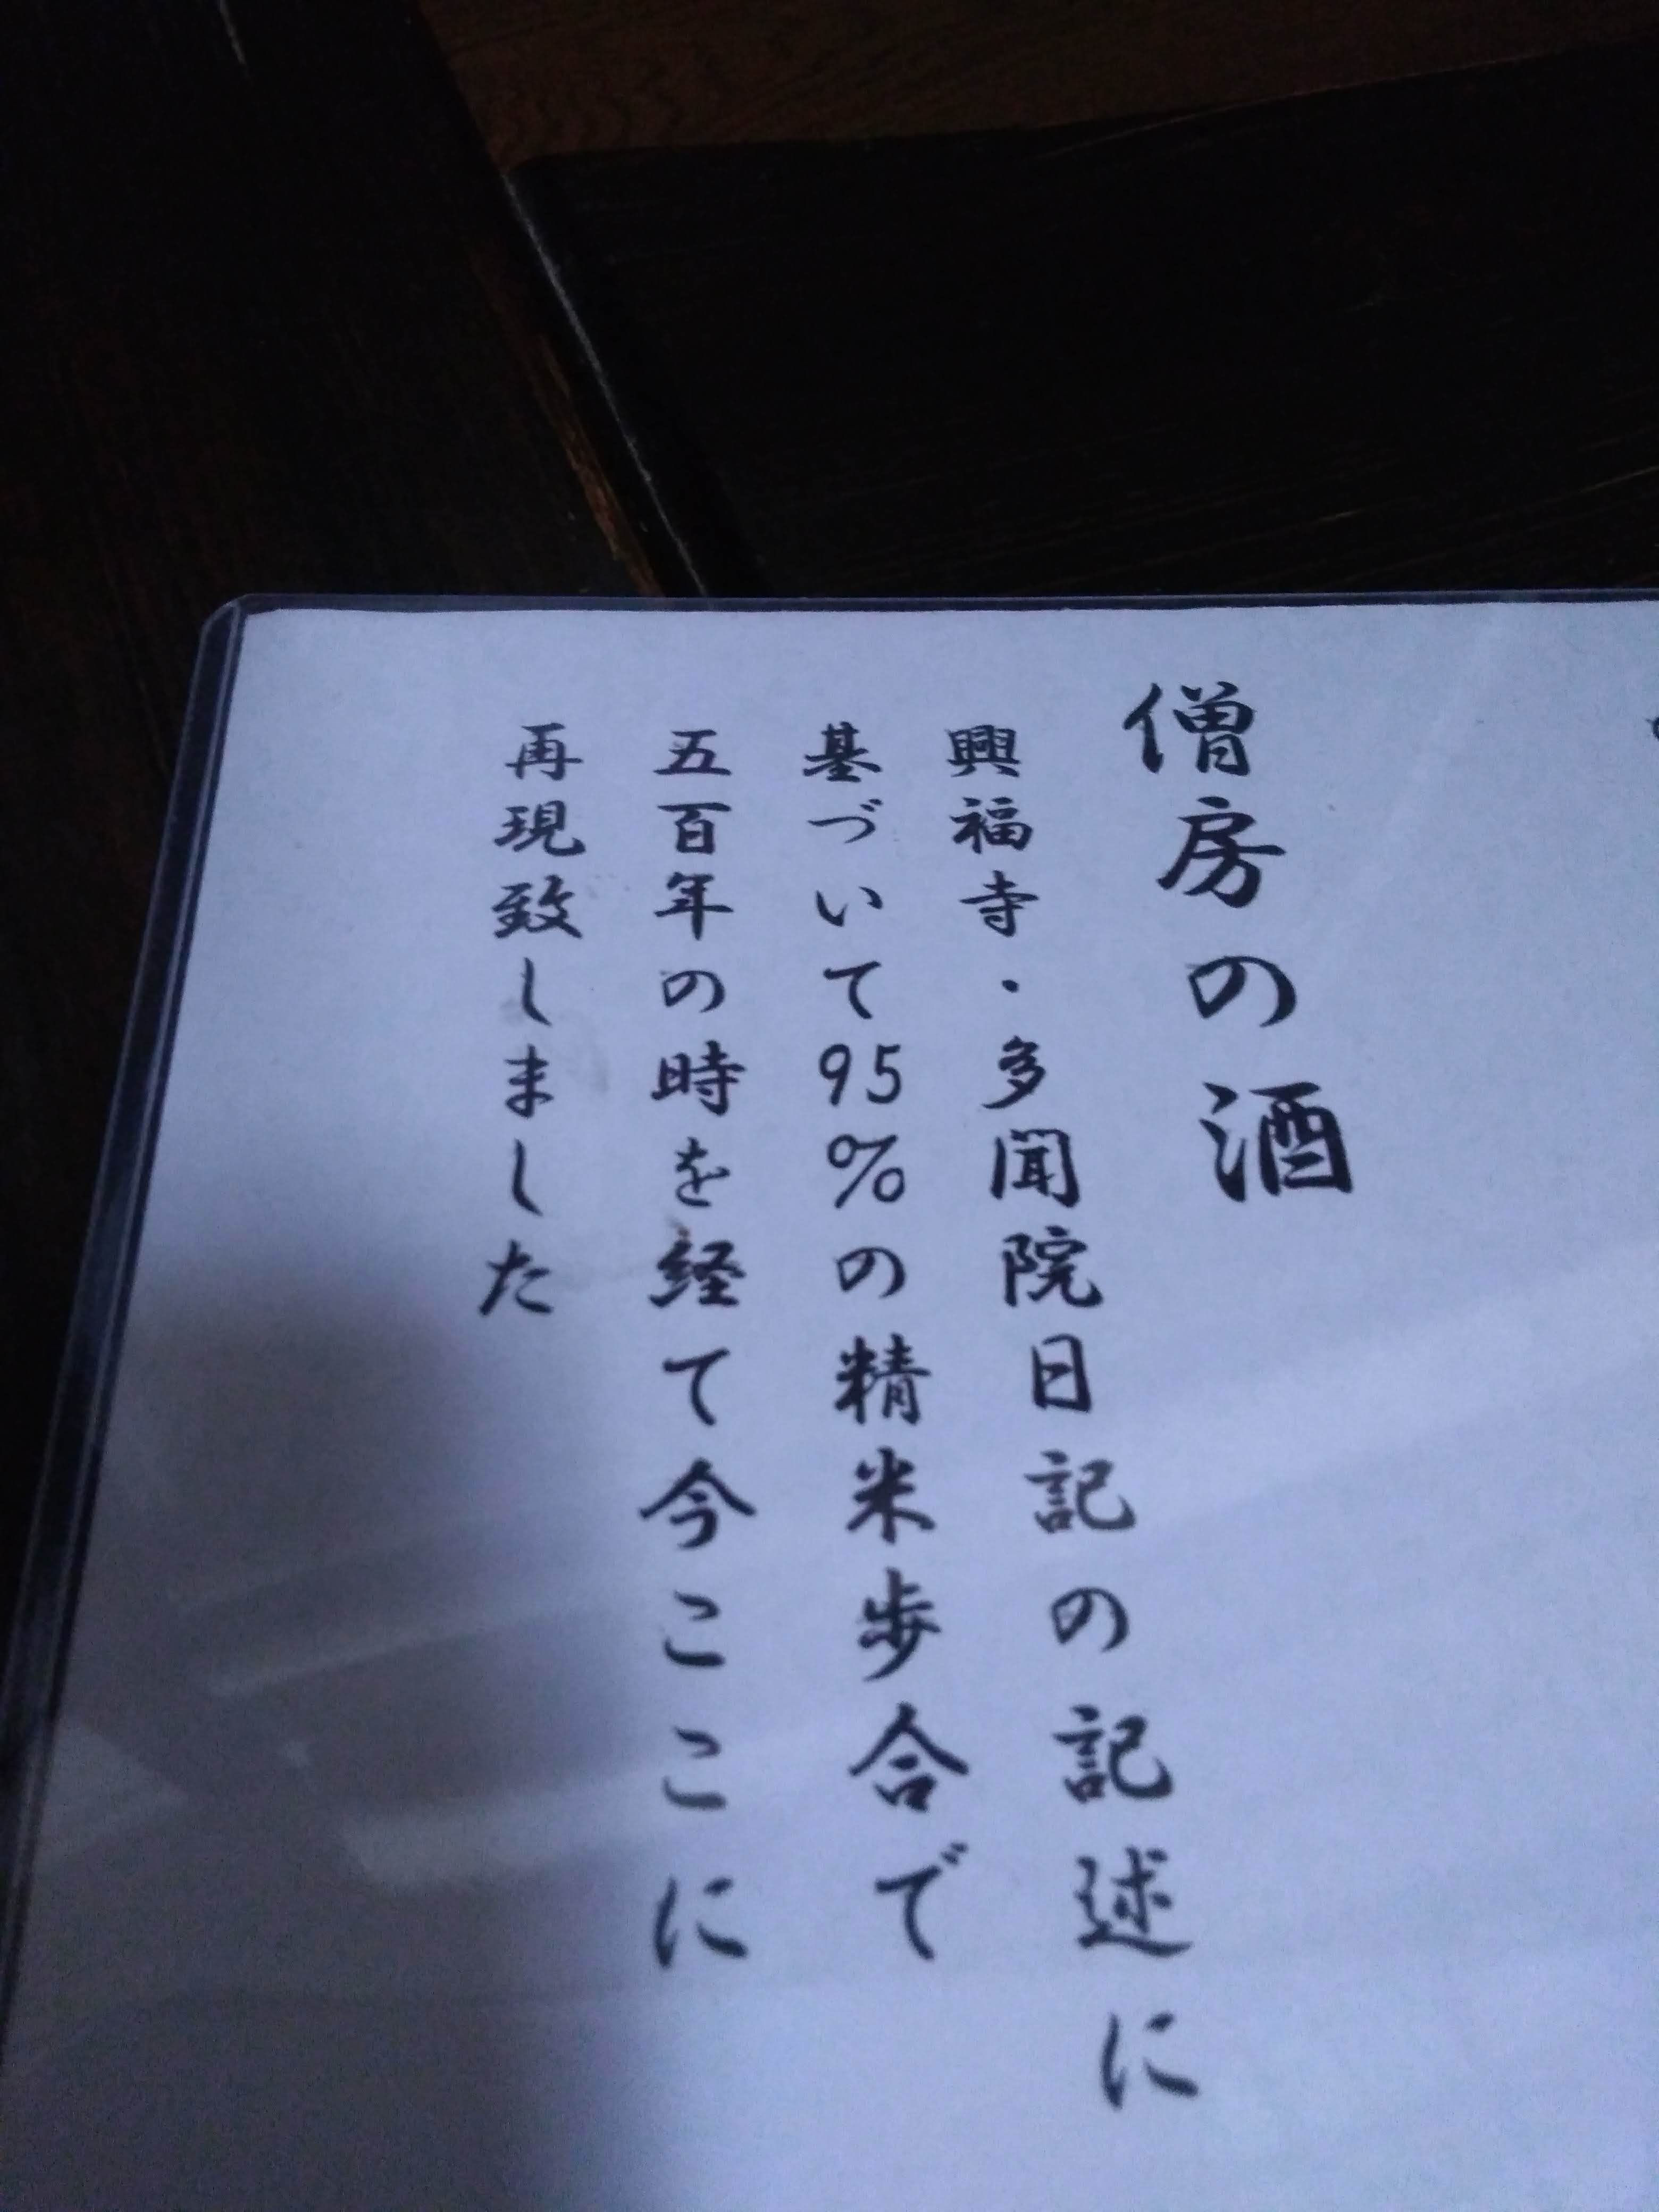 僧房の酒
興福寺・多聞院日記の記述に
基づいて95%の精米歩合で
五百年の時を経て今ここに
再現致しました